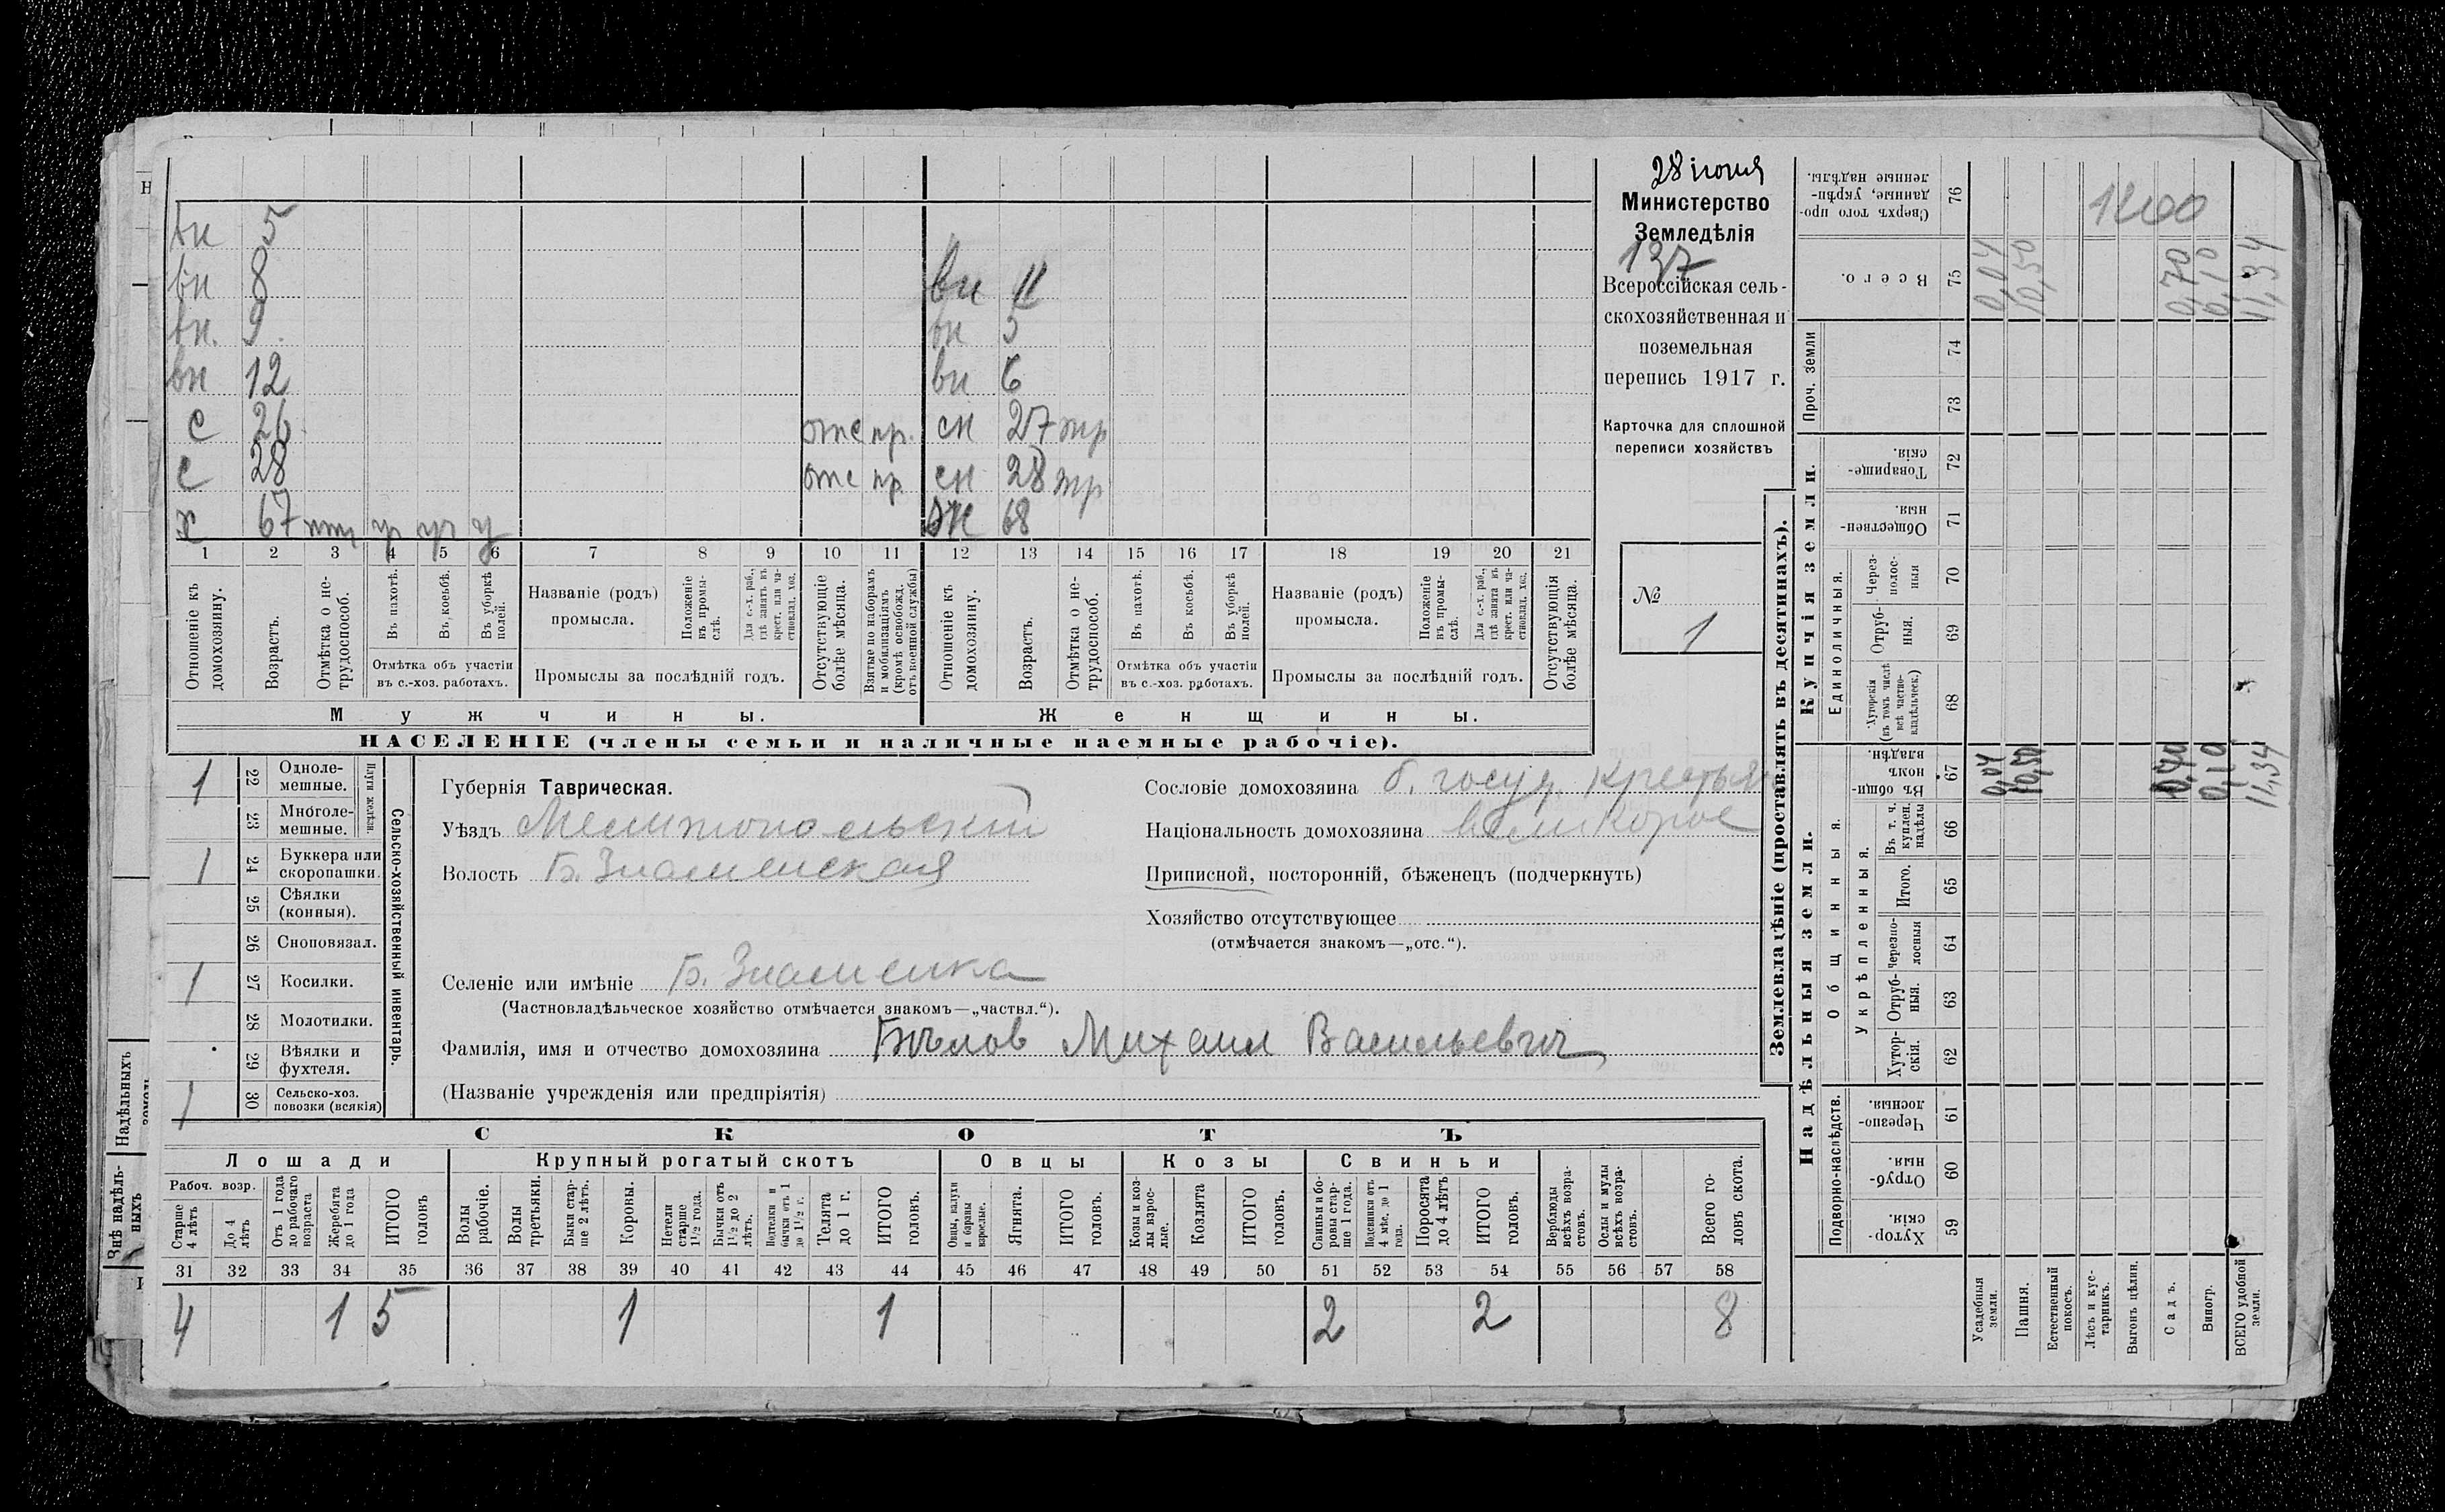 28 іюня
Министерство
Земледѣлія
137
Всероссійская сель-
скохозяйственная и
поземельная
перепись 1917 г.
Карточка для сплошной
переписи хозяйствъ
№
1
вн 5
вн 8 вн 11
вн. 9. вн 5
вн 12 вн 6
с 26 отс пр. сн 27 тр
с 28 отс пр. сн 28 тр
х 67 у ж 68
1 2 3 4 5 6 7 8 9 10 11 12 13 14 15 16 17 18 19 20 21
Отношеніе къ домохозяину.
Возрастъ.
Отмѣтка о не-трудоспособ.
Въ пахотѣ.
Въ косьбѣ.
Въ уборкѣ полей.
Отмѣтка объ участіи
въ с.-хоз. работахъ.
Названіе (родъ)
промысла.
Положеніе въ промы-слѣ.
Для с.-х. раб., гдѣ занятъ въ крест. или ча-стновлад. хоз.
Промыслы за послѣдній годъ.
Отсутствующіе болѣе мѣсяца.
Взятые по наборамъ и мобилизаціямъ (кромѣ освобожд. отъ военной службы)
Отношеніе къ домохозяину.
Возрастъ.
Отмѣтка о не-трудоспособ.
Въ пахотѣ.
Въ косьбѣ.
Въ уборкѣ полей.
Отмѣтка объ участіи
въ с.-хоз. работахъ.
Названіе (родъ)
промысла.
Положеніе въ промы-слѣ.
Для с.-х. раб., гдѣ занята въ крест. или ча-стновлад. хоз.
Промыслы за послѣдній годъ.
Отсутствующія болѣе мѣсяца.
Мужчины.
Женщины.
НАСЕЛЕНІЕ (члены семьи и наличные наемные рабочіе).
1 22 Одноле-мешные.
23 Многоле-мешные.
Плуги желѣзн.
1 24 Буккера или скоропашки.
25 Сѣялки (конныя).
26 Сноповязал.
1 27 Косилки.
28 Молотилки.
29 Вѣялки и фухтеля.
1 30 Сельско-хоз. повозки (всякія)
Сельско-хозяйственный инвентарь.
Губернія Таврическая.
Уѣздъ Мелитопольскій
Волость Б. Знаменская
Селеніе или имѣніе Б. Знаменка
(Частновладѣльческое хозяйство отмѣчается знакомъ—„частвл.“).
Фамилія, имя и отчество домохозяина Бѣлов Михаил Васильевич
(Названіе учрежденія или предпріятія)
Сословіе домохозяина б. госуд. крестьян
Національность домохозяина великорос
Приписной, посторонній, бѣженецъ (подчеркнуть)
Хозяйство отсутствующее
(отмѣчается знакомъ—„отс.“).
СКОТЪ
Лошади
Крупный рогатый скотъ
Овцы
Козы
Свиньи
Рабоч. возр.
Старше 4 лѣтъ
До 4 лѣтъ
Отъ 1 года до рабочаго возраста
Жеребята до 1 года
ИТОГО головъ
Волы рабочіе.
Волы третьяки.
Быки стар-ше 2 лѣтъ.
Коровы.
Нетели старше 1½ года.
Бычки отъ 1½ до 2 лѣтъ.
Нетелки и бычки отъ 1 до 1½ г.
Телята до 1 г.
ИТОГО головъ.
Овцы, валухи и бараны взрослые.
Ягнята.
ИТОГО головъ.
Козы и коз-лы взрос-лые.
Козлята
ИТОГО головъ.
Свиньи и бо-ровы стар-ше 1 года.
Подсвинки отъ 4 мѣс. до 1 года.
Поросята до 4 лѣтъ
ИТОГО головъ.
Верблюды всѣхъ возра-стовъ.
Ослы и мулы всѣхъ возра-стовъ.
Всего го-ловъ скота.
31 32 33 34 35 36 37 38 39 40 41 42 43 44 45 46 47 48 49 50 51 52 53 54 55 56 57 58
4 1 5 1 1 2 2 8
Землевладѣніе (проставлять въ десятинахъ).
Надѣльныя земли.
Купчія земли.
Проч. земли
Сверхъ того про-данные, укрѣп-ленные надѣлы. 76
1200
Всего. 75
0,04 10,50 0,70 0,10 11,34
74
73
Товарище-скія. 72
Обществен-ныя. 71
Единоличныя.
Через-полос-ныя 70
Отруб-ныя. 69
Хуторскія (въ томъ числѣ всѣ частно-владѣльческ.) 68
Общинныя.
Въ общин-номъ владѣн. 67
0,04 10,50 0,70 0,10 11,34
Укрѣпленныя.
Въ т. ч. куплен. надѣлы 66
Итого. 65
Черезпо-лосныя 64
Отруб-ныя. 63
Хутор-скія. 62
Подворно-наслѣдств.
Черезпо-лосныя. 61
Отруб-ныя. 60
Хутор-скія. 59
Усадебныя земли.
Пашня.
Естественный покосъ.
Лѣсъ и кус-тарникъ.
Выгонъ цѣлин.
Садъ.
Виногр.
ВСЕГО удобной земли.
Надѣльныхъ
Внѣ надѣль-ныхъ